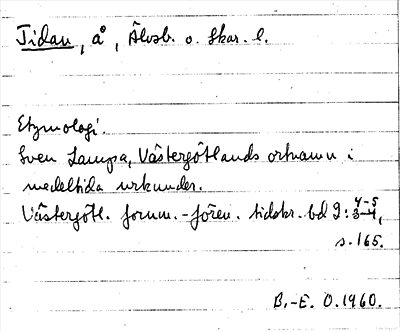 Tidan, å, Älvsb. o. Skar. l.
Etymologi.
Sven Lampa, Västergötlands ortnamn i
medeltida urkunder.
Västergötl. fornm.-fören. tidskr. bd 9: 4-5 3-4,
s. 165.
B.-E. O. 1960.